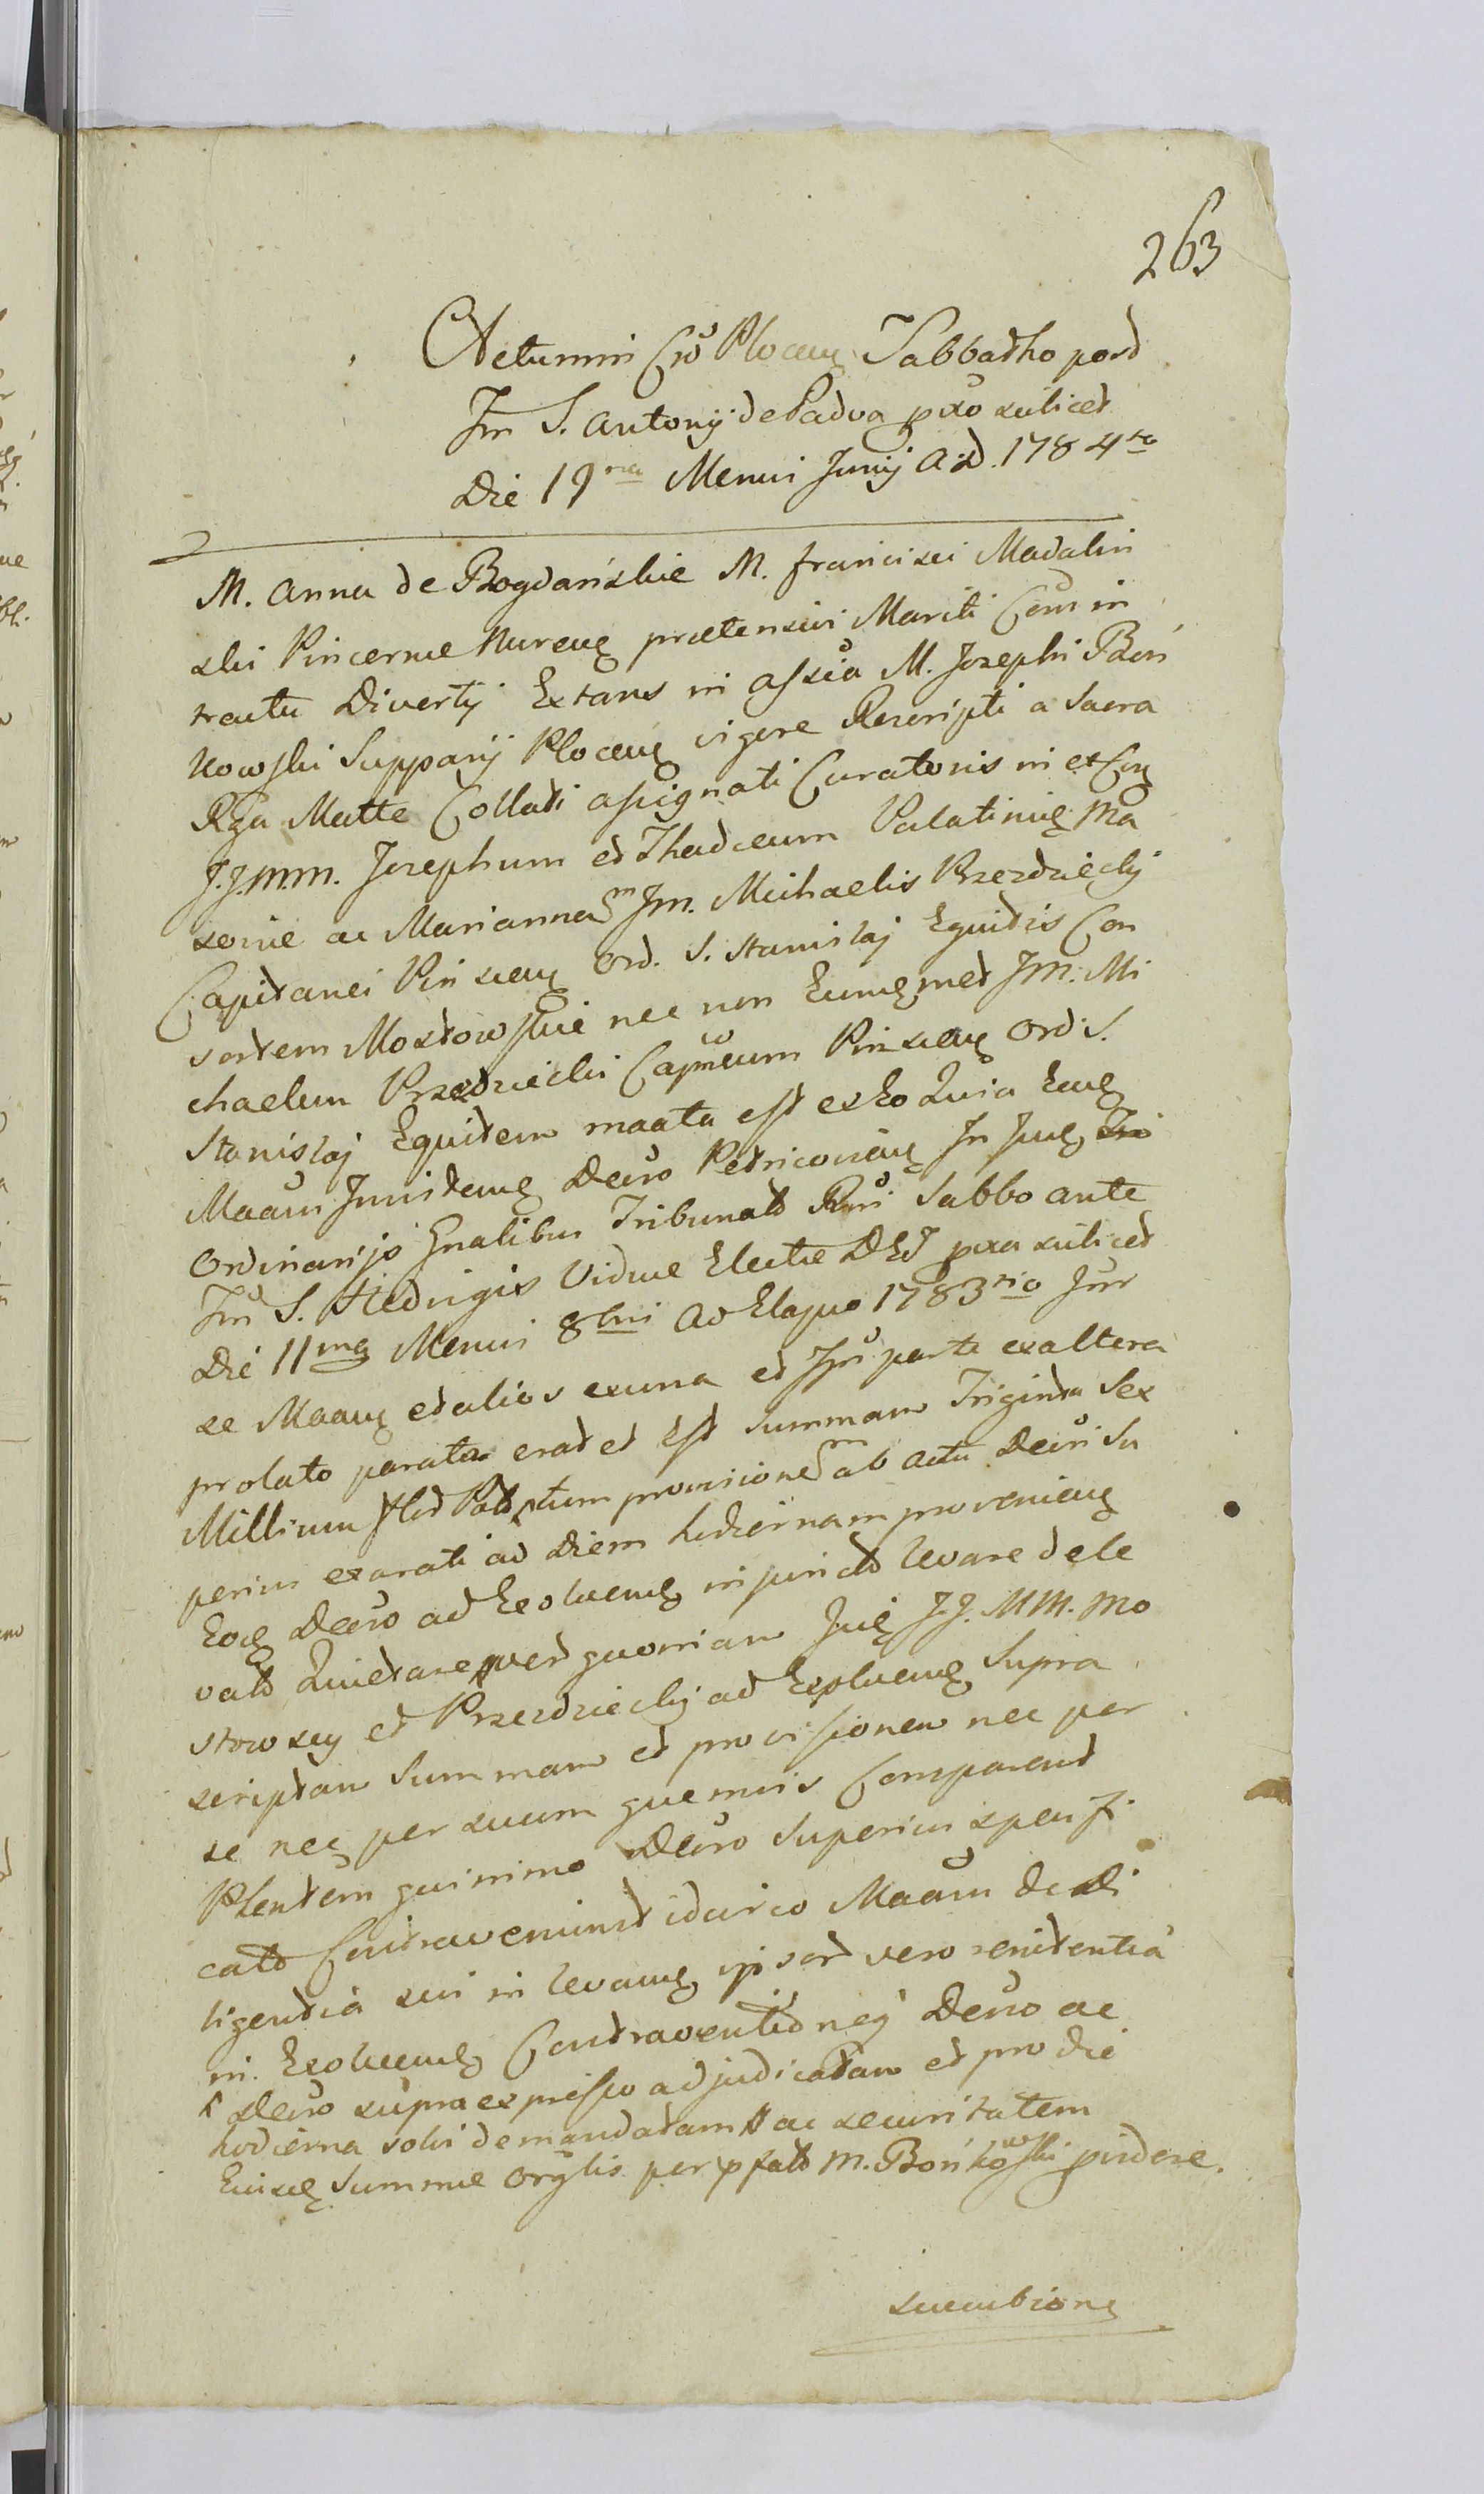 263
Actum in Cro Plocen Sabbatho post
Fm S. Antonij de Padva pxo scilicet
Die 19na Mensis Junij A.D. 1784to
M. Anna de Bogdańskie M. Francisci Madalin
ski Pincernae Nuren praetensivi Mariti Coniu in
tractu Divortij Extans in assia M. Josephi Boń
kowski Supparij Plocen vigore Rescripti a Sacra
Rga Matte Collati assignati Curatoris in et Con
J.J.M.M. Josephum et Thadaeum Palatinie Ma
soviae ac Mariannam Jm. Michaelis Przezdziecky
Capitanei Pinscen Ord. S. Stanislaj Equitis Con
sortem Mostowskie nec non Eumemet JM. Mi
chaelem Przezdziecki Capneum Pinscen Ord. S.
Stanislaj Equitem maata est ex Eo Quia Eae
Maam Insistene Decro Petricovien In Jue
Ordinarijs Gnalibus Tribunals Rni Sabbo ante
Fm S. Hedvigis Viduae Electae DEI pxa scilicet
Die 11ma Mensis 8bris Ao Elapso 1783tio Inr
se Maane et alios ex una et Ipso parte ex altera
prolato parata erat et Est Summam Triginta Sex
Millium Flor Pols tum provisionem ab actu Decri Su
perius exarati ad Diem hodiernam provenien
Eoe Decro ad Exolvene injuncts levare de le
vats Quietare quoniam Jue J.J. MM. Mo
stowscy et Przezdziecky ad Exolvene Supra
scriptam Summam et provisionem nec per
se nec per suum quemvis Comparent
Plentem quinimo Decro Superius specifi
cato Contraveniunt idcirco Maam de di
ligentia sui in levane ipsor vero renitentia
in Exolvene Contraventioneq Decro ac
Decro supra expresso adjudicatam et pro die
hodierna solvi demandatam ac securitatem
Eiusce Summae Orglis per pfato M. Bońkowski
succubione